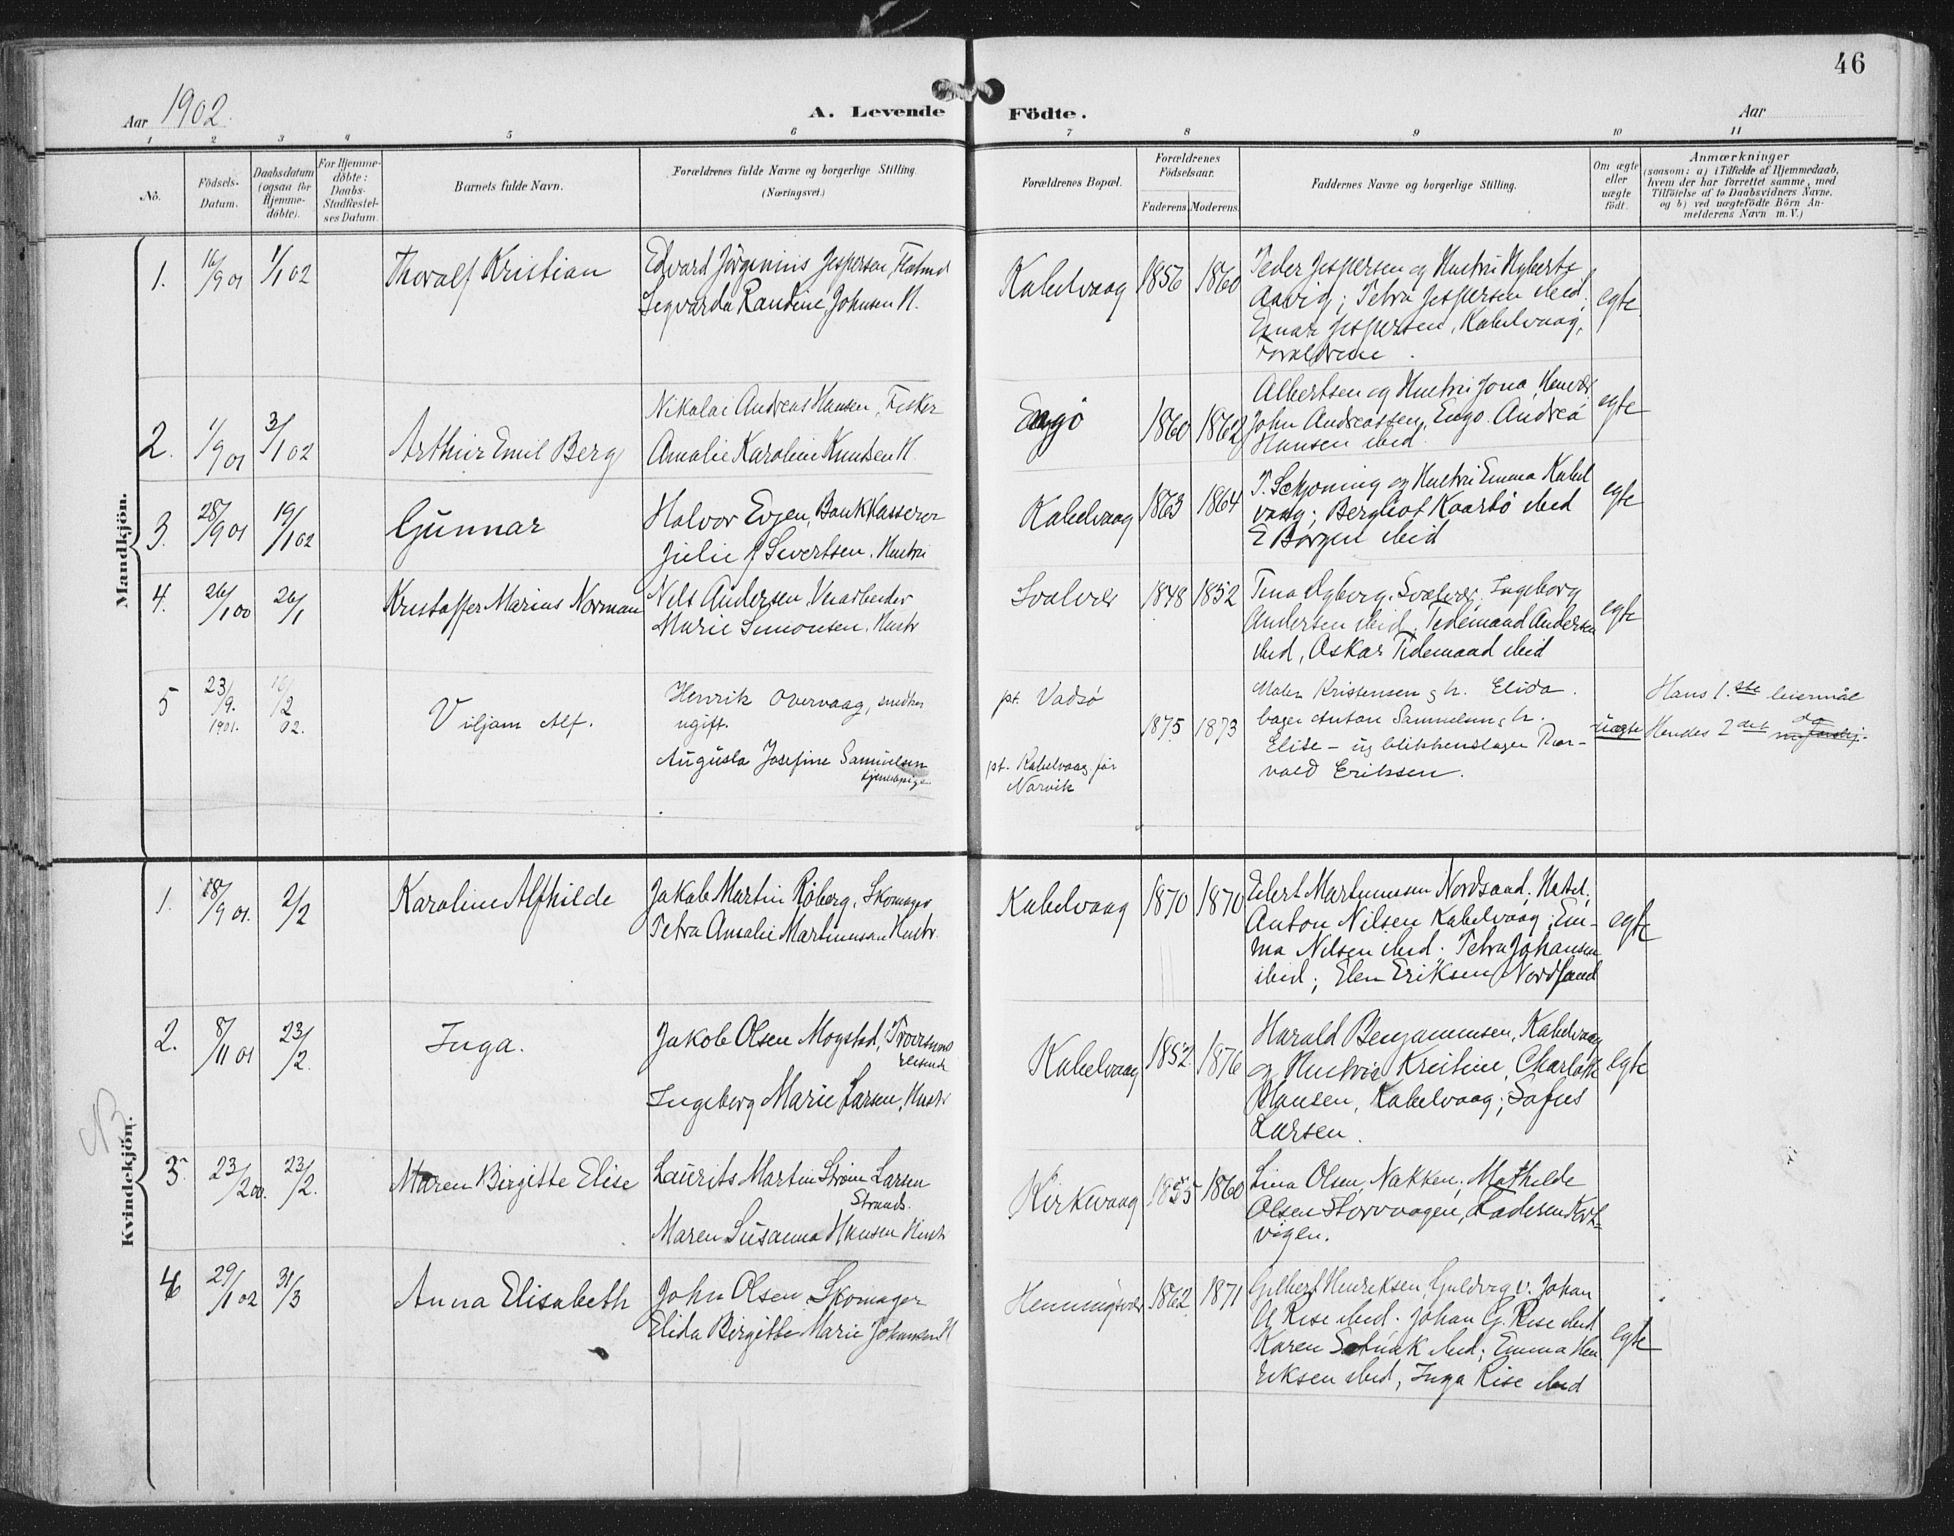 46
Aar 1902.
A. Levende Födte.
Aar
1 2 3 4 5 6 7 8 9 10 11
No.
Födsels-Datum.
Daabsdatum (ogsaa for Hjemme-döbte).
For Hjemme-döbte: Daabs-Stadfæstel-ses Datum.
Barnets fulde Navn.
Forældrenes fulde Navne og borgerlige Stilling.
(Næringsvei.)
Forældrenes Bopæl.
Forældrenes Födselsaar.
Faderens. Moderens.
Faddernes Navne og borgerlige Stilling.
Om ægte eller uægte födt.
Anmærkninger
(saasom: a) i Tilfælde af Hjemmedaab,
hvem der har forrettet samme, med
Tilföielse af to Daabsvidners Navne,
og b) ved uægtefödte Börn An-
melderens Navn m. V.)
Mandkjön.
1. 16/9 01 1/1 02 Thoralf Kristian
Edvard Jörginius Jespersen,
Segvarda Randine Johnsen H.
Kabelvaag 1856 1860
Peder Jespersen og Hustru
Petra Jespersen ibid,
Einar Jespersen, Kabelvaag,
Forældrene.
egte
2. 1/9 01 3/1 02 Arthur Emil Berg
Nikolai Andreas Hansen, Fisker
Amalie Karoline Knudsen H.
Engø 1860 1862
Albertsen og Hustru Jona,
John Andreassen, Engø. Andrea
Hansen ibid
egte
3. 28/9 01 19/1 02 Gunnar
Halvor Evjen, Bankkasserer
Julie J Sivertsen, Hustru
Kabelvaag 1863 1864
P. Schjoning og Hustru Emma Kabel
vaag; Bergliot Kaarbø ibid
E Borgen ibid
egte
4. 26/1 00 26/1 Kristoffer Marius Norman
Nils Andersen,
Marie Simonsen, Hustr
Svolvær 1848 1852
Tina Nyborg, Svolvær, Ingeborg
Andersen ibid, Tidemand Andersen
ibid, Oskar Tidemand ibid
egte
5 23/9. 1901. 16/2 02. Viljam Alf.
Henrik Overvaag, snedker
ugift.
Augusta Josefine Samuelsen
tjenestepige
pt. Vadsø
pt. Kabelvaag før
Narvik
1875 1873
Maler Kristensen & h. Elida.
bager Anton Samuelsen & h.
Elise - og blikkenslager Thor-
vald Eriksen.
uægte
Hans 1.ste leiermål
Hendes 2det do
Kvindekjön.
NB
1. 18/9 01. 2/2 Karoline Alfhilde
Jakob Martin Röberg, Skomager
Petra Amalie Martinussen Hustr.
Kabelvaag 1870 1870
Edert Martinussen Nordsand,
Anton Nilsen Kabelvaag; Em-
ma Nilsen ibid; Petra Johansen
ibid; Elen Eriksen, Nordsand
egte
2. 8/11 01 23/2. Inga.
Jakob Olsen Mogstad,
Ingeborg Marie Larsen, Hustr
Kabelvaag 1852 1876
Harald Benjaminsen, Kabelvaag
og Hustru Kristine, Charlotte
Hansen, Kabelvaag; Sofus
Larsen.
egte
3. 23/2 00. 23/2. Maren Birgitte Elise
Laurits Martin Strøm Larsen
Strands.
Maren Susanna Hansen Hustr
Kirkvaag 1855 1860
Lina Olsen, Nakken, Mathilde
Olsen Storvaagen,
vigen.
4 29/1 02 31/3 Anna Elisabeth
John Olsen, Skomager
Elida Birgitte Marie Johansen H
Henningsvær 1862 1871
Gilbert Henriksen, Guldvig v. Johan
U Rise ibid. Johan G. Rise ibid
Karen ibid; Emma Hen
riksen ibid, Inga Rise ibid
egte